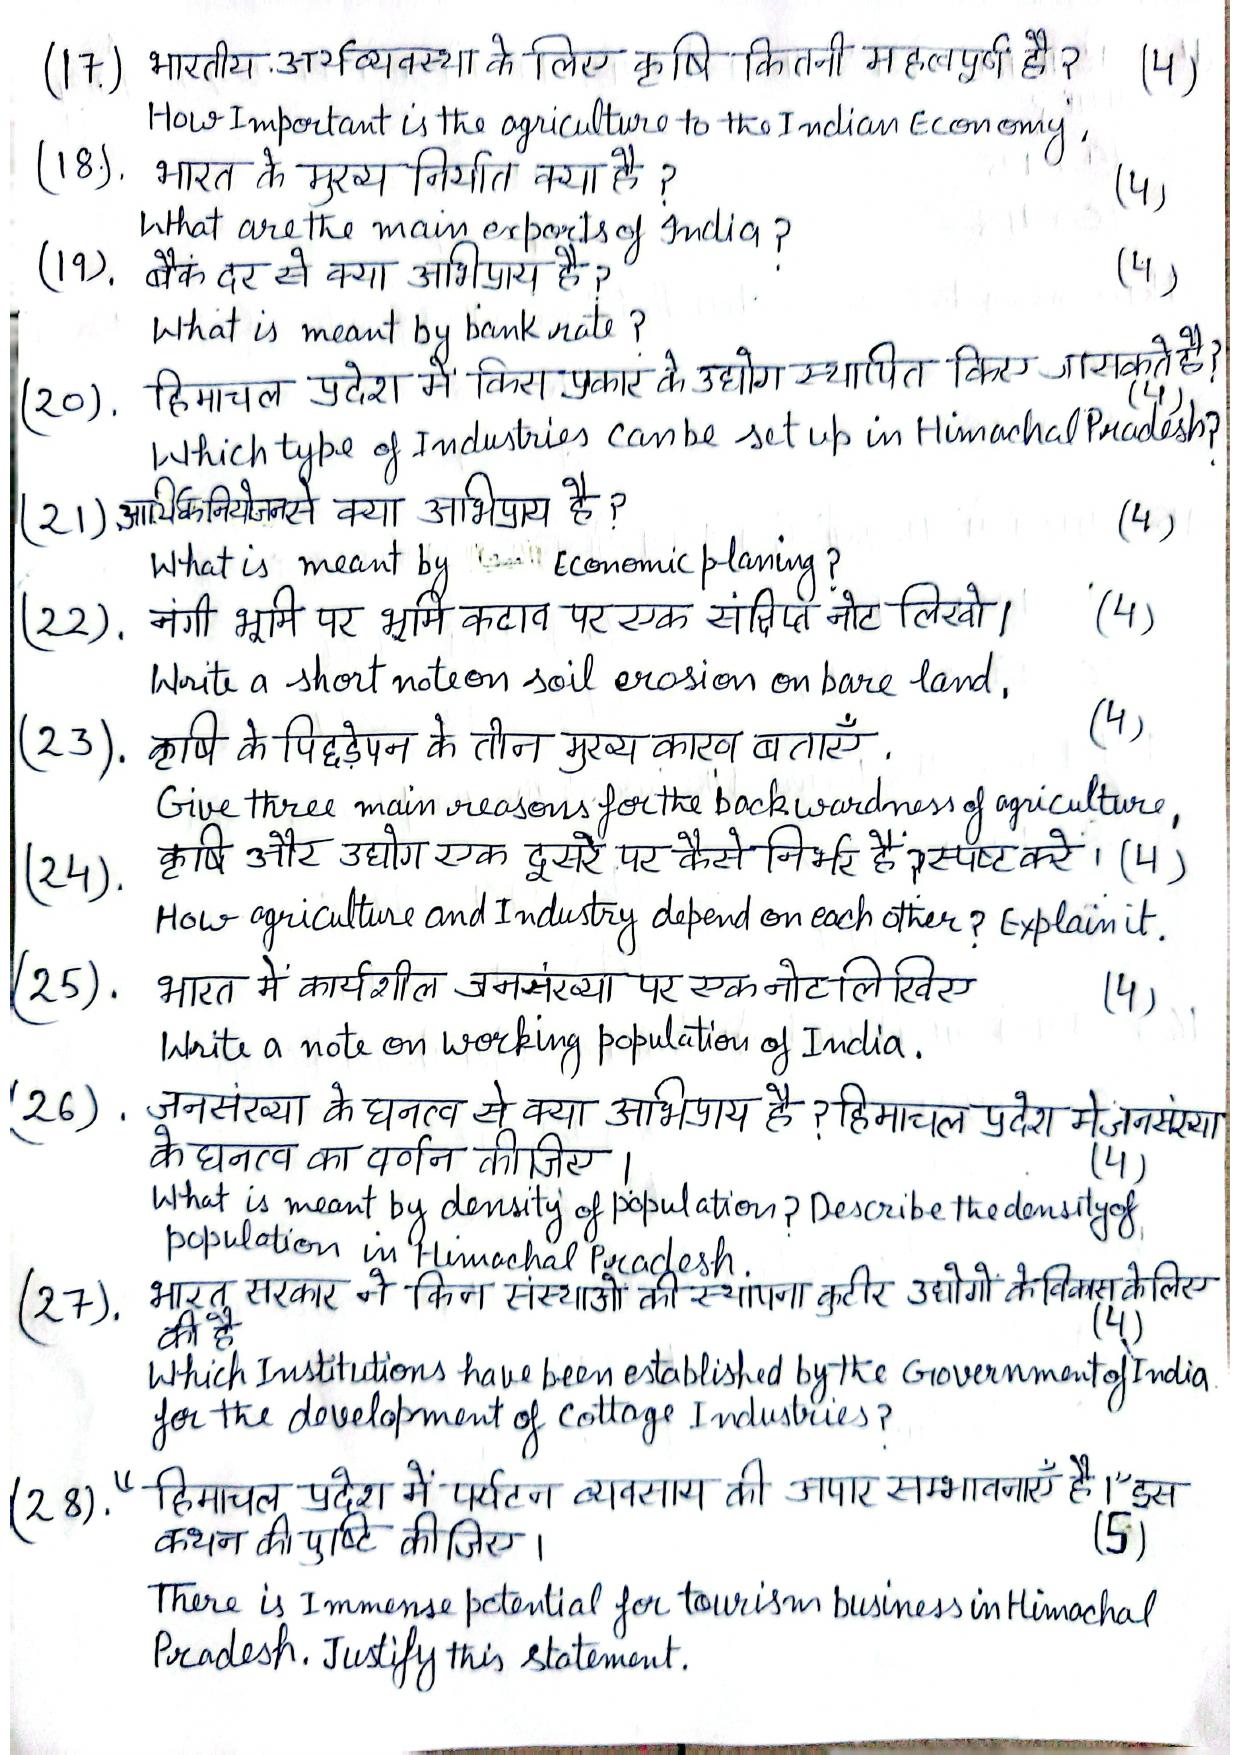 (17.) भारतीय अर्थव्यवस्था के लिए कृषि कितनी महत्वपूर्ण है? (4)
How Important is the agriculture to the Indian Economy.
(18). भारत के मुख्य निर्यात क्या है? (4)
What are the main exports of India?
(19). बैकं दर से क्या अभिप्राय है? (4)
What is meant by bank rate?
(20). हिमाचल प्रदेश में किस प्रकार के उद्योग स्थापित किए जा सकते है?
(4)
Which type of Industries can be set up in Himachal Pradesh?
(21) आर्थिक नियोजन से क्या अभिप्राय है? (4)
What is meant by Economic planing?
(22). नंगी भूमि पर भूमि कटाव पर एक संक्षिप्त नोट लिखो। (4)
Write a short note on soil erosion on bare land.
(23). कृषि के पिछड़ेपन के तीन मुख्य कारण बताएँ. (4)
Give three main reasons for the backwardness of agriculture.
(24). कृषि और उद्योग एक दूसरे पर कैसे निर्भर हैं? स्पष्ट करें। (4)
How agriculture and Industry depend on each other? Explain it.
(25). भारत में कार्यशील जनसंख्या पर एक नोट लिखिए (4)
Write a note on working population of India.
(26). जनसंख्या के घनत्व से क्या अभिप्राय है? हिमाचल प्रदेश मे जनसंख्या
के घनत्व का वर्णन कीजिए। (4)
What is meant by density of population? Describe the density of
population in Himachal Pradesh.
(27). भारत सरकार ने किन संस्थाओं की स्थापना कुटीर उद्योगों के विकास के लिए
की है (4)
Which Institutions have been established by the Government of India
for the development of Cottage Industries?
(28). "हिमाचल प्रदेश में पर्यटन व्यवसाय की अपार सम्भावनाएँ है।" इस
कथन की पुष्टि कीजिए। (5)
There is Immense potential for tourism business in Himachal
Pradesh. Justify this statement.